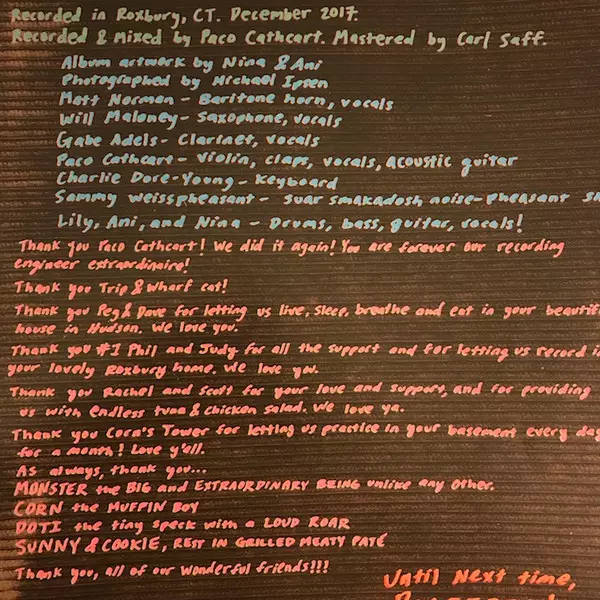 Recorded in Roxbury, CT. December 2017.
Recorded & Mixed by Paco Cathcart. Mastered by Carl Saff.
Album artwork by Nina & Ani
Photographed by Michael Ipsen
Matt Norman - Baritone horn, vocals
Will Maloney - Saxophone, vocals
Gabe Adels - Clarinet, vocals
Paco Cathcart - Violin, claps, vocals, acoustic guitar
Charlie Dore-Young - Keyboard
Sammy weisspheasant - suar smakadosh noise-pheasant
Lily, Ani, and Nina - Drums, bass, guitar, vocals!
Thank you Paco Cathcart! We did it again! You are forever our recording
engineer extraordinaire!
Thank you Trip & Wharf cat!
Thank you Peg & Dave for letting us live, sleep, breathe and eat in your beautif
house in Hudson. We love you.
Thank you #1 Phil and Judy for all the support and for letting us record i
your lovely Roxbury home. We love you.
Thank you Rachel and Scott for your love and support, and for providing
us with endless tuna & chicken salad. We love ya.
Thank you Corn's Tower for letting us practice in your basement every day
for a month! Love y'all.
As always, thank you...
MONSTER the BIG and EXTRAORDINARY BEING unlike any other.
CORN the MUFFIN BOY
DOTI the tiny speck with a LOUD ROAR
SUNNY & COOKIE, REST IN GRILLED MEATY PATÉ
Thank you, all of our wonderful friends!!!
Until Next time,